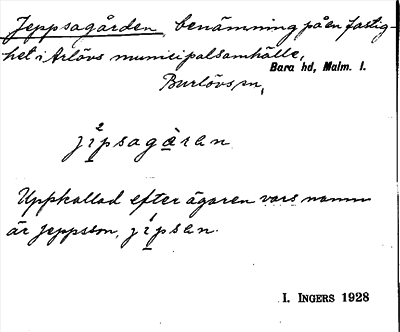 Jeppsagården, benämning på en fastig-
het i Arlövs municipalsamhälle,
Bara hd, Malm. l.
Burlövs sn,
jìpsagàran
Uppkallad efter ägaren vars namn
är Jeppsson, jípsen.
I. INGERS 1928